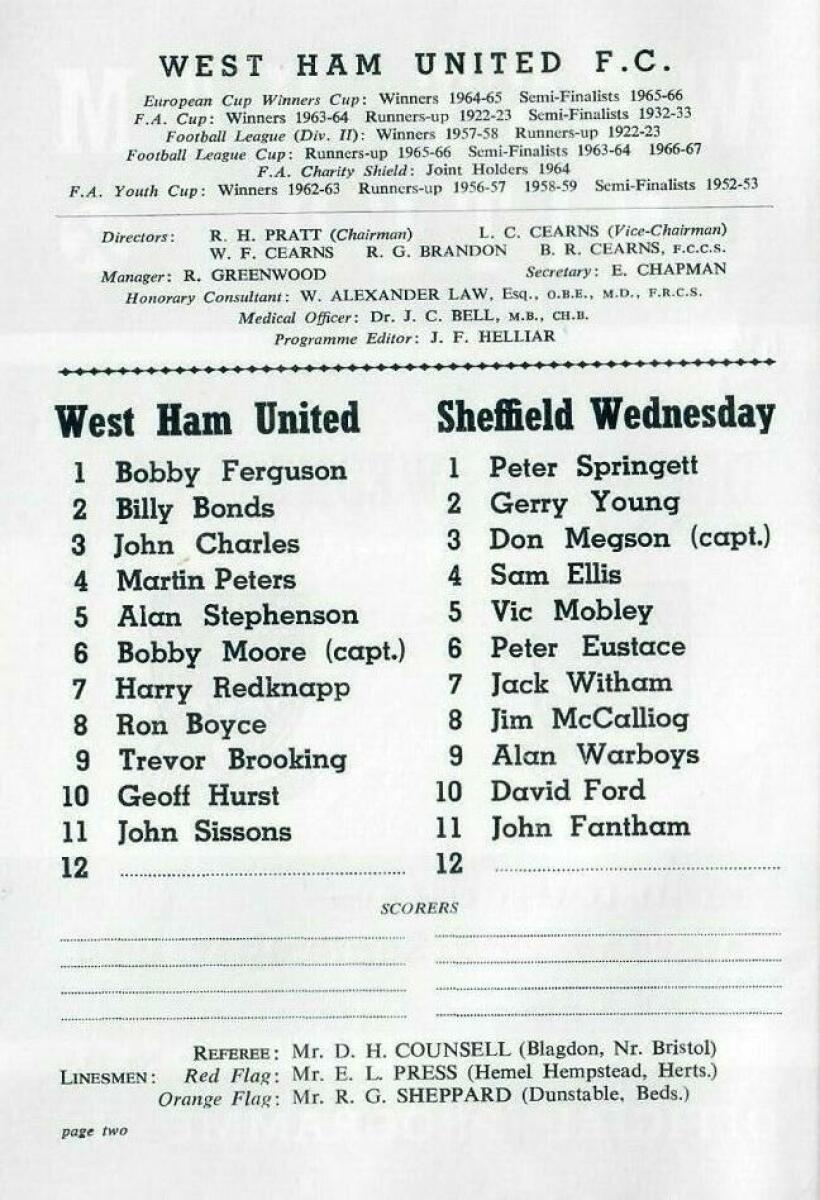 WEST HAM UNITED F.C.
European Cup Winners Cup: Winners 1964-65 Semi-Finalists 1965-66
F.A. Cup: Winners 1963-64 Runners-up 1922-23 Semi-Finalists 1932-33
Football League (Div. II): Winners 1957-58 Runners-up 1922-23
Football League Cup: Runners-up 1965-66 Semi-Finalists 1963-64 1966-67
F.A. Charity Shield: Joint Holders 1964
F.A. Youth Cup: Winners 1962-63 Runners-up 1956-57 1958-59 Semi-Finalists 1952-53
Directors: R. H. PRATT (Chairman) L. C. CEARNS (Vice-Chairman)
W. F. CEARNS R. G. BRANDON B. R. CEARNS, F.C.C.S.
Manager: R. GREENWOOD Secretary: E. CHAPMAN
Honorary Consultant: W. ALEXANDER LAW, Esq., O.B.E., M.D., F.R.C.S.
Medical Officer: Dr. J. C. BELL, M.B., CH.B.
Programme Editor: J. F. HELLIAR
West Ham United
1 Bobby Ferguson
2 Billy Bonds
3 John Charles
4 Martin Peters
5 Alan Stephenson
6 Bobby Moore (capt.)
7 Harry Redknapp
8 Ron Boyce
9 Trevor Brooking
10 Geoff Hurst
11 John Sissons
12
Sheffield Wednesday
1 Peter Springett
2 Gerry Young
3 Don Megson (capt.)
4 Sam Ellis
5 Vic Mobley
6 Peter Eustace
7 Jack Witham
8 Jim McCalliog
9 Alan Warboys
10 David Ford
11 John Fantham
12
SCORERS
REFEREE: Mr. D. H. COUNSELL (Blagdon, Nr. Bristol)
LINESMEN: Red Flag: Mr. E. L. PRESS (Hemel Hempstead, Herts.)
Orange Flag: Mr. R. G. SHEPPARD (Dunstable, Beds.)
page two